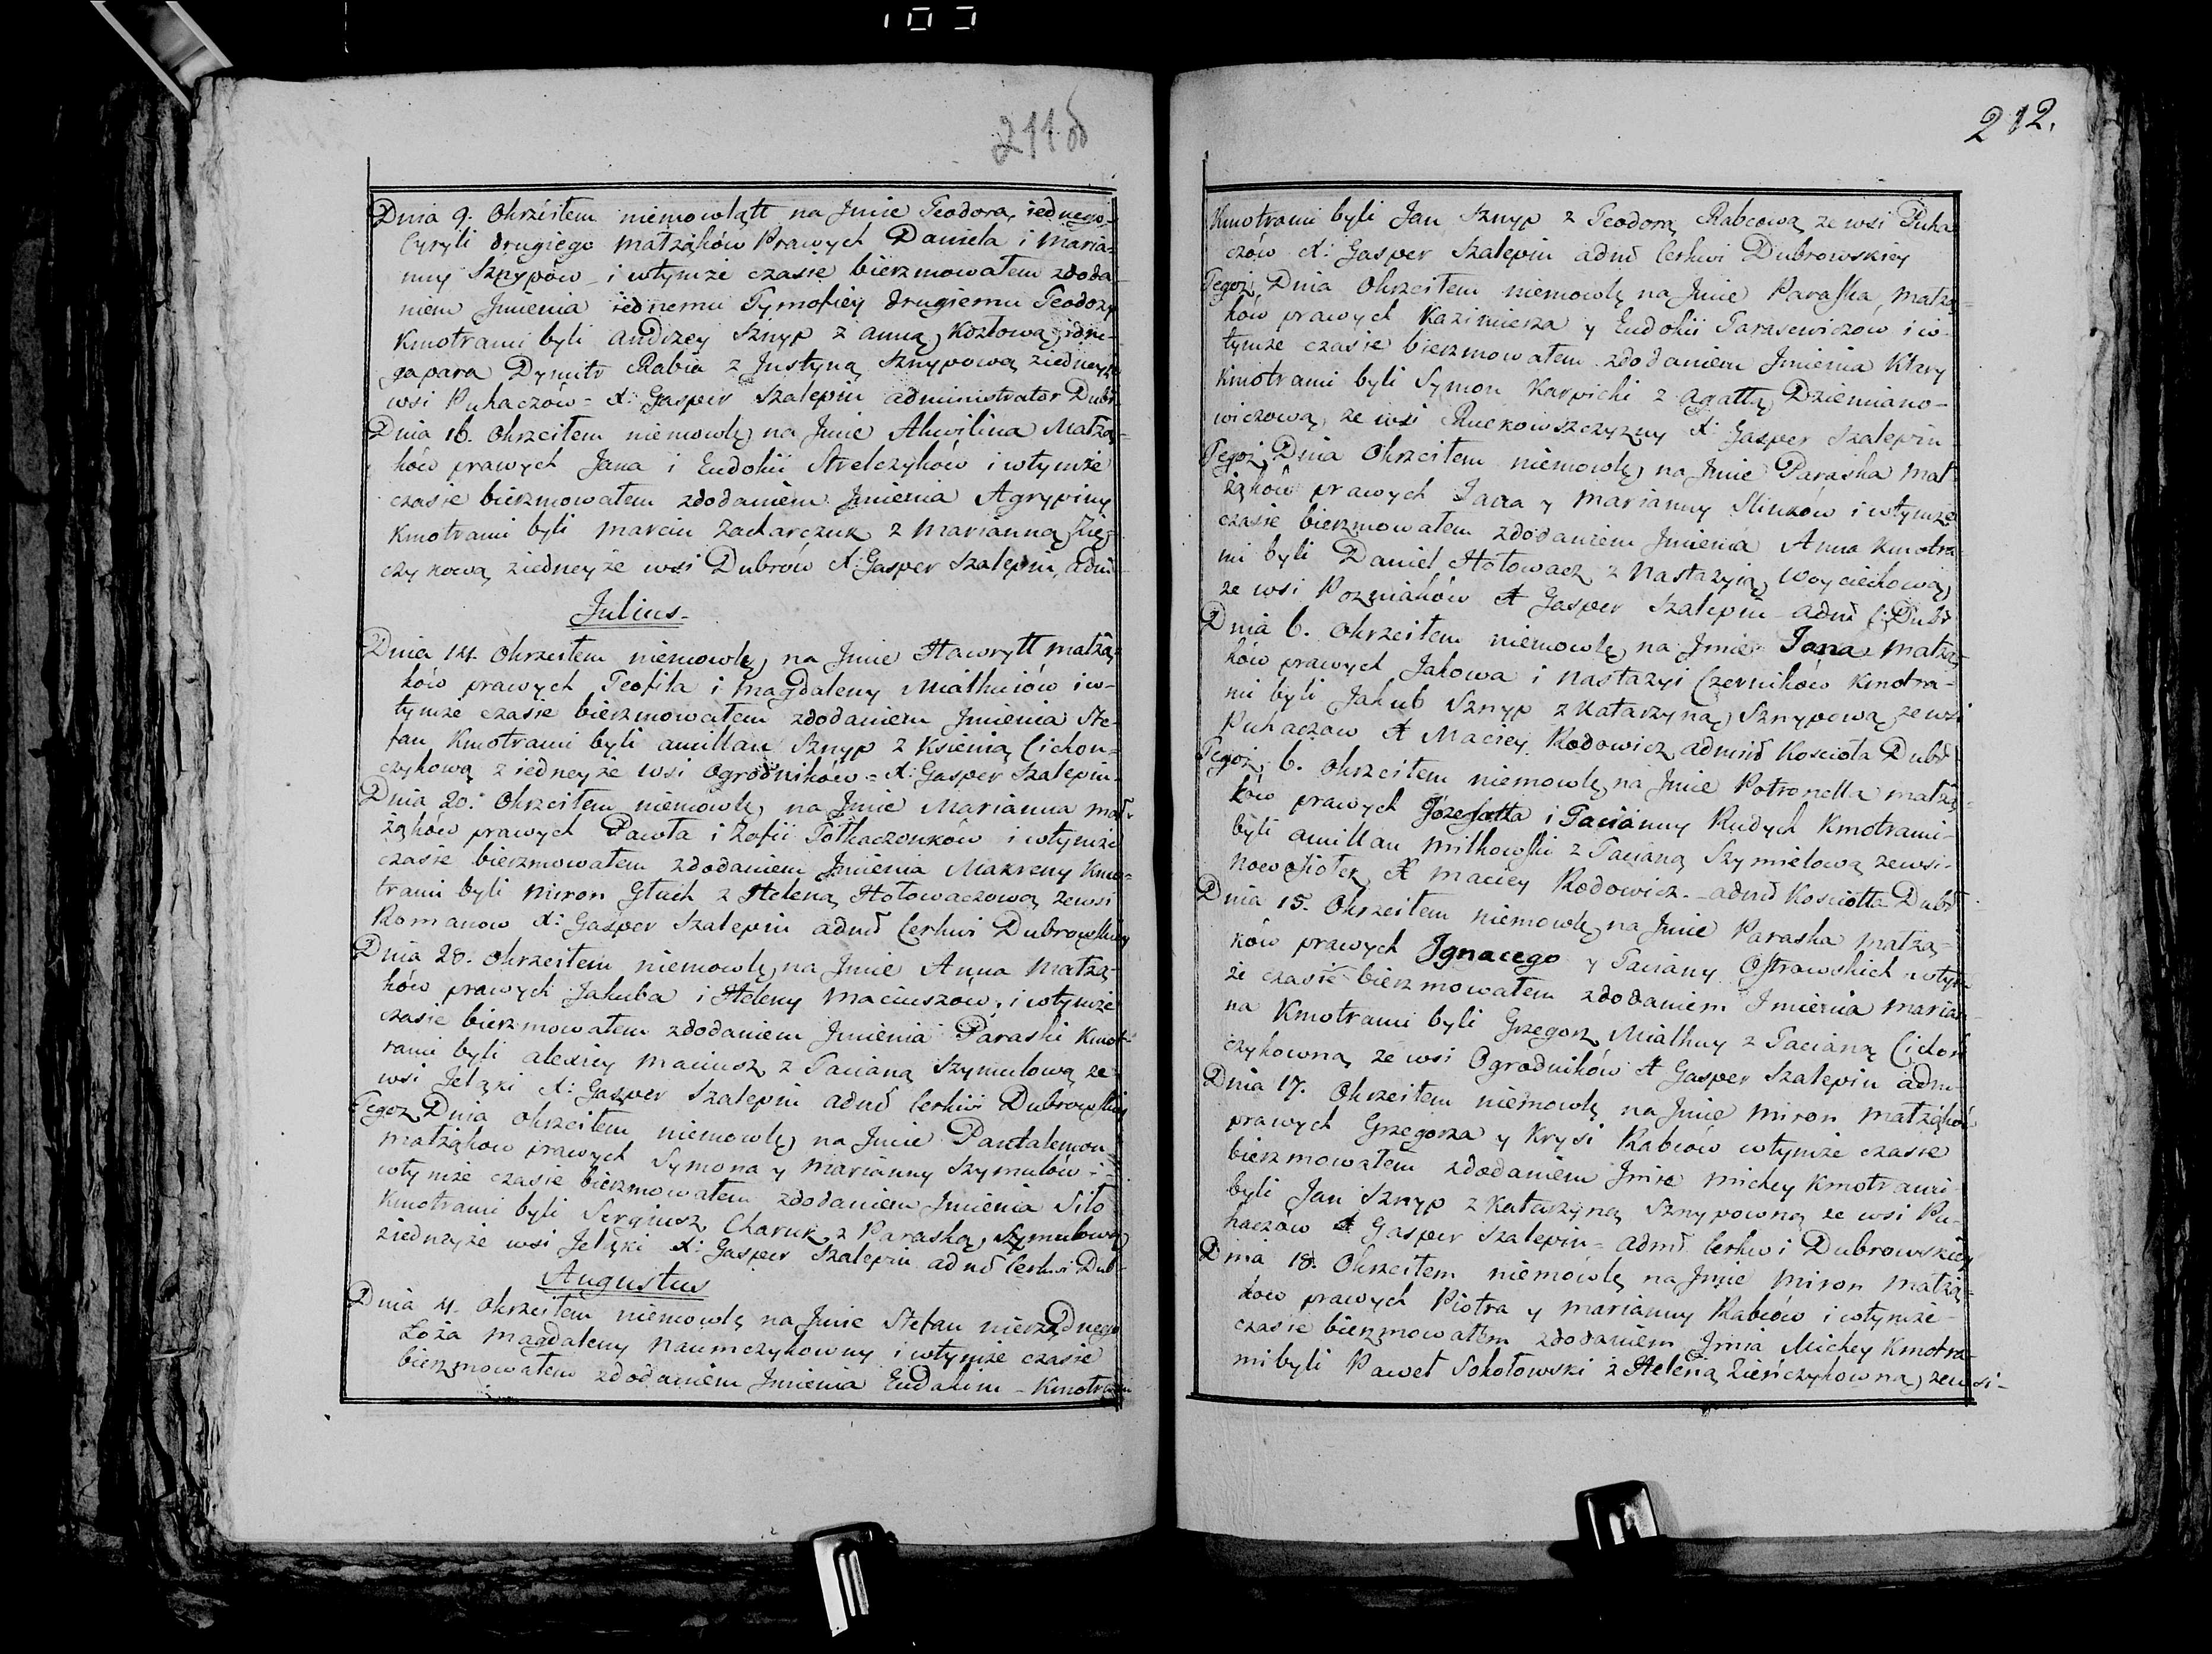 211 об
Dnia 9. Ohrzciłem niemowlątt na Jmie Teodora, iednego-
Cyryli drugiego małżąków Prawych Daniela i Maria=
nny Sznypów i wtymże czasie bierzmowałem zdoda
niem Jmienia iednemu Tymofiey drugiemu Teodozy
Kmotrami byli Andrzey Sznyp z Anną Kozłową, idru-
ga para Dymitr Rabia z Justyną Sznypową ziedneyże
wsi Puhaczów = X: Gasper Szalepin administrator Dubr
Dnia 16. Ohrzciłem niemowlę na Jmie Akwilina Małżą=
ków prawych Jana i Eudokii Strelczyków i wtymże
czasie bierzmowałem zdodaniem Jmienia Agrypiny
Kmotrami byli Marcin Zacharczuk z Marianną
czykową ziedneyże wsi Dubrów X: Gasper Szalepin, adm
Julius-
Dnia 14. Ohrzciłem niemowlę na Jmie Hawryłł małżą
ków prawych Teofila i Magdaleny Miałkuiów i w-
tymże czasie bierzmowałem zdodaniem Jmienia Ste-
fan Kmotrami byli amillan Sznyp z Ksienią Cichon=
czykową ziedneyże wsi Ogrodników = X: Gasper Szalepin-
Dnia 20. Ohrzciłem niemowlę na Jmie Marianna mał
żąków prawych Pawła i Zofii Połhaczonków i wtymże
czasie bierzmowałem zdodaniem Jmienia Makreny Kmo=
trami byli Miron Głuch z Heleną Hołowaczową zewsi
Romanow X: Gasper Szalepin admd Cerkwi Dubrowskiey
Dnia 28. Ohrzciłem niemowlę na Jmie Anna Małżą-
ków prawych Jakuba i Heleny Maciuszów, i wtymże
czasie bierzmowałem zdodaniem Jmienia Paraski Kmot
rami byli Alexiey Maciusz z Tacianą Szymulową ze
wsi Jelązki X: Gasper Szalepin admd Cerkwi Dubrowskiey
Tegoz Dnia Ohrzciłem niemowlę na Jmie Pantalemon-
małżąkow prawych Symona y Marianny Szymulów i=
wtymże czasie bierzmowałem zdodaniem Jmienia Siło
Kmotrami byli Sergiusz Charuk z Paraską Szymulową
ziedneyże wsi Jelązki X: Gasper Szalepin admd Cerkwi Dub-
Augustus
Dnia 4. Ohrzciłem niemowlę na Jmie Stefan nierządnego
Łoża Magdaleny Naumczykowny i wtymże czasie
bierzmowałem zdodaniem Jmienia Eudakim - Kmotrami
212.
Kmotrami byli Jan Sznyp z Teodorą Rabcową ze wsi Puha
czów X: Gasper Szalepin admd Cerkwi Dubrowskiey
Tegoż Dnia Ohrzciłem niemowlę na Jmie Paraska, małżą=
ków prawych Kazimierza y Eudokii Tarasewiczów i w-
tymże czasie bierzmowałem zdodaniem Jmienia Klary
Kmotrami byli Symon Karpicki z Agattą Dziemiano-
wiczową ze wsi X: Gasper Szalepin
Tegoż Dnia Ohrzciłem niemowlę na Jmie Paraska Mał
żąków prawych Jana y Marianny Slinków i wtymże
czasie bierzmowałem zdodaniem Jmienia Anna Kmotra
mi byli Daniel Hołowacz z Nastazyią Woyciechową
ze wsi Pozniaków X Gasper Szalepin admd C: Dubr
Dnia 6. Ohrzciłem niemowlę na Jmie Jana Małżą
ków prawych Jakowa i Nastazyi Czerników Kmotra-
mi byli Jakub Sznyp z Katarzyną Sznypową ze wsi
Puhaczow X Maciey Rodowicz admid Kościoła Dubr
Tegoż 6. Ohrzciłem niemowlę na Jmie Potronella małżą=
ków prawych Józefatta i Tacianny Rudych Kmotrami-
byli amillan Miłkowski z Tacianą Szymielową zewsi-
Nowosiołek X Maciey Rodowicz - admd Kosciołła Dubr
Dnia 15. Ohrzciłem niemowlę na Jmie Paraska Małżą-
ków prawych Ignacego y Taciany Ostrowskich wtym
że czasie bierzmowałem zdodaniem Jmienia Marian-
na Kmotrami byli Grzegorz Miałkuy z Tacianą Cichon
czykowną ze wsi Ogrodników X Gasper Szalepin adm-
Dnia 17. Ohrzciłem niemowlę na Jmie Miron Małżąków
prawych Grzegorza y Krysi Rabców wtymże czasie
bierzmowałem zdodaniem Jmie Michey Kmotrami-
byli Jan Sznyp z Katarzyną Sznypowną ze wsi Pu-
haczów X Gasper Szalepin = admd Cerkwi Dubrowskiey
Dnia 18. Ohrzciłem niemowlę na Jmie Miron Małżą=
ków prawych Piotra y Marianny Rabców i wtymże-
czasie bierzmowałem zdodaniem Jmia Michey Kmotra-
mi byli Paweł Sokołowski z Heleną Zieńczykowną, zewsi-